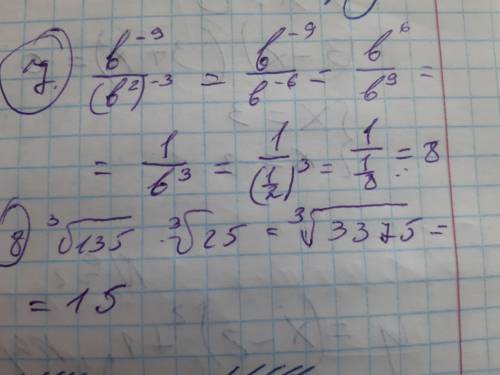 7. b^{-9}/(b^2)^{-3} = b^{-9}/b^{-6} = b^6/b^9 =
= 1/b^3 = 1/(1/2)^3 = 1/(1/8) = 8
8) ∛135 · ∛25 = ∛3375 =
= 15